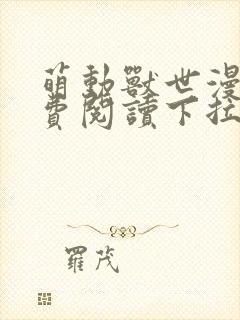 萌動獸世漫
費閱讀下拉
羅茂